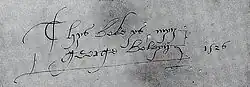 Thys boke ys myn
George Boleyn 1526